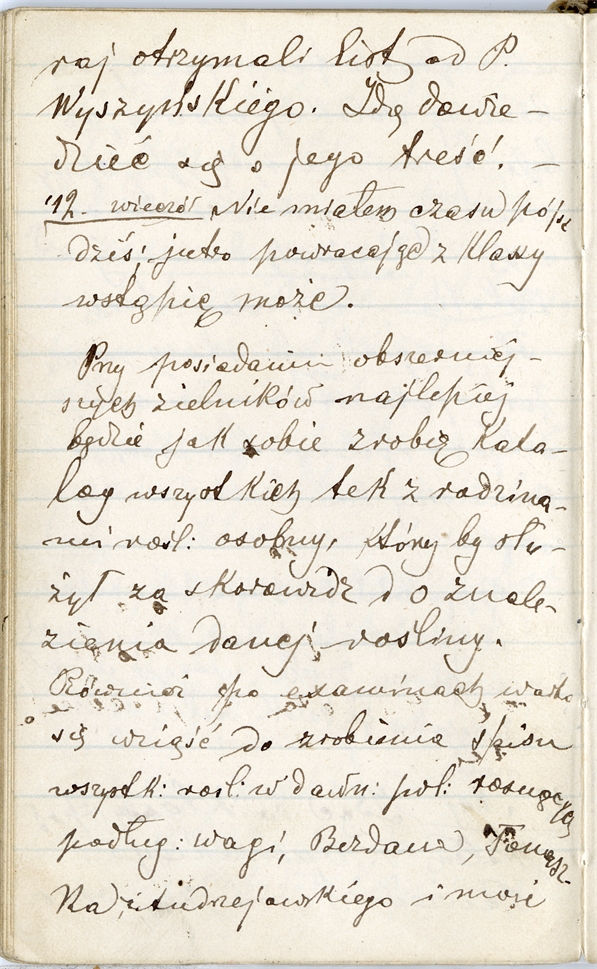 raj otrzymali list od P.
Wyszyńskiego. Idę dowie-
dzieć się o jego treść. -
12. wieczór Nie miałem czasu pójść
dziś; jutro powracając z klassy
wstąpię może.
Przy posiadaniu obszerniej-
szych zielników najlepiej
będzie jak sobie zrobię kata-
log wszystkich tek z rodzina-
mi rośl: osobny, któryby słu-
żył za skorowidz do znale-
zienia danej rośliny.
Również po examinach warto
się wziąść do zrobienia spisu
wszystk: rośl: w dawn: pol: rosnących
podług: Wagi, Berdana,
i Andrzejowskiego i może